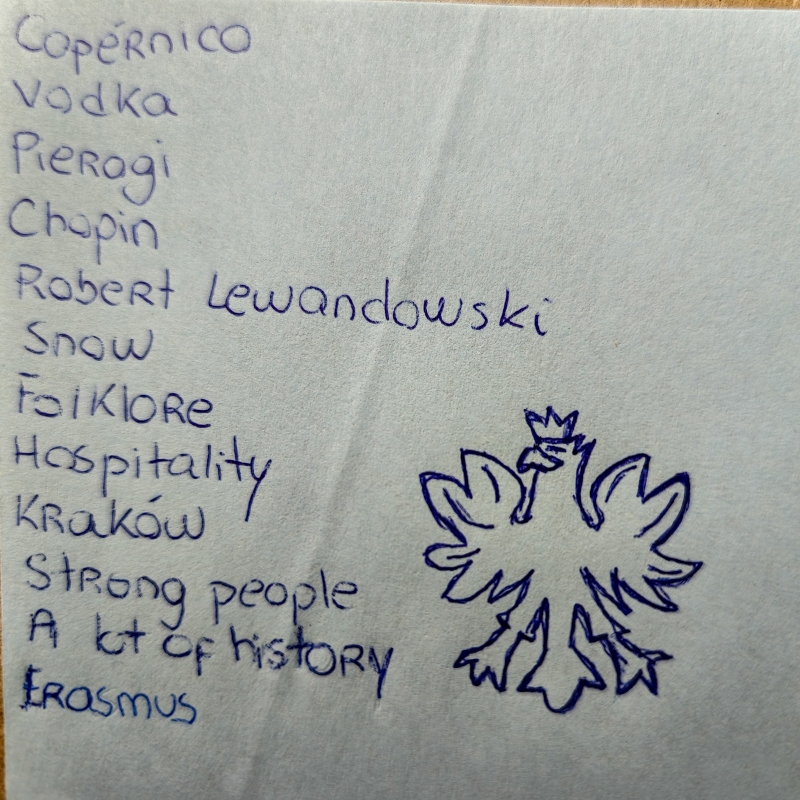 Copérnico
Vodka
Pierogi
Chopin
Robert Lewandowski
Snow
Folklore
Hospitality
Kraków
Strong people
A lot of history
Erasmus